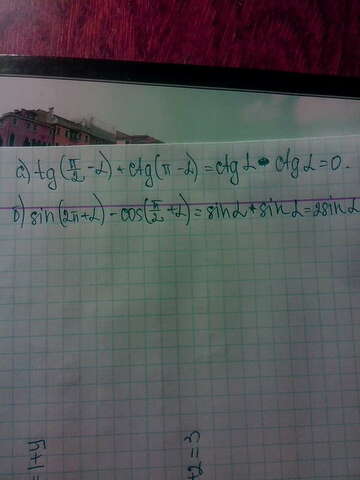 а) tg(π/2 - α) + ctg(π - α) = ctg α - ctg α = 0.
б) sin(2π + α) - cos(π/2 + α) = sin α + sin α = 2 sin α
= 1 + y
+2 = 3